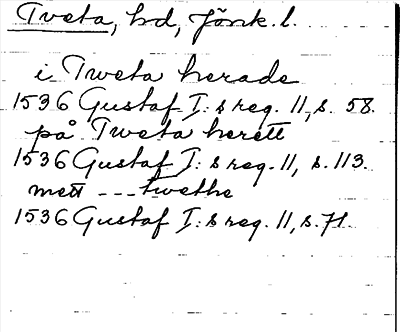 Tveta, hd, Jönk. l.
i Tweta herade
1536 Gustaf I:s reg. 11, s. 58.
på Tweta herett
1536 Gustaf I:s reg. 11, s. 113.
mett --- twethe
1536 Gustaf I:s reg. 11, s. 71.